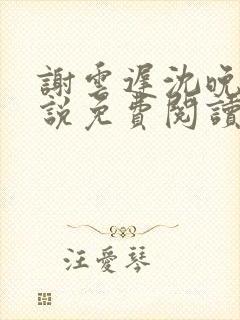 謝雲遲沈晚
說免費閱讀
汪愛琴